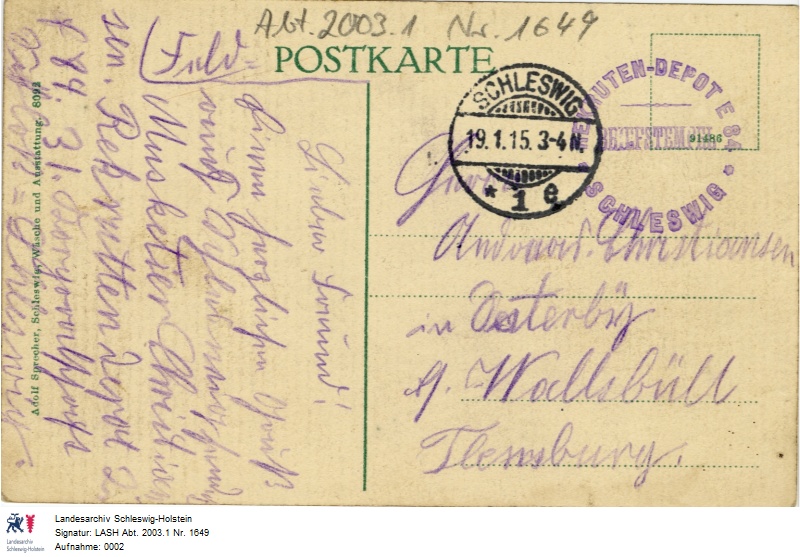 Abt. 2003.1 Nr. 1649
POSTKARTE
(Feld=
SCHLESWIG
19.1.15. 3-4 N.
* 1 e
REKRUTEN-DEPOT E 84 * SCHLESWIG *
BRIEFSTEMPEL
91486
Lieber Freund!
Einen herzlichen Gruß
Musketier Christian
sen. Rekruttendepot
84. 3
Andreas. Christiansen
in Osterby
b. Wallsbüll
Flensburg.
Adolf Sprecher, Schleswig, Wäsche und Ausstattung. 8092
Landesarchiv Schleswig-Holstein
Signatur: LASH Abt. 2003.1 Nr. 1649
Aufnahme: 0002
Landesarchiv
Schleswig-Holstein